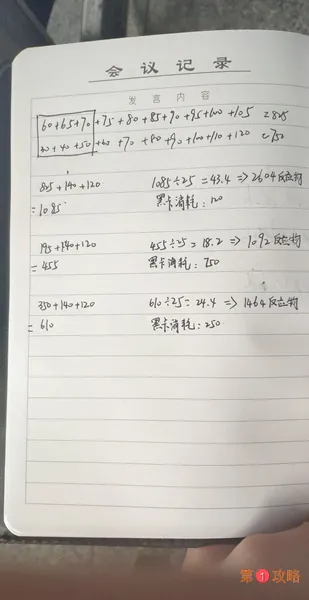 会议记录
发言内容
60+65+70+75+80+85+90+95+100+105=825
30+40+50+60+70+80+90+100+110+120=750
825+140+120 1085÷25=43.4=>2604反应物
=1085 黑卡消耗:100
195+140+120 455÷25=18.2=>1092反应物
=455 黑卡消耗:750
350+140+120 610÷25=24.4=>1464反应物
=610 黑卡消耗:250
第1攻略